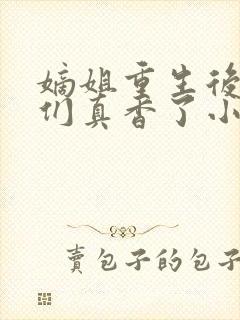 嫡姐重生後
们真香了小
賣包子的包子